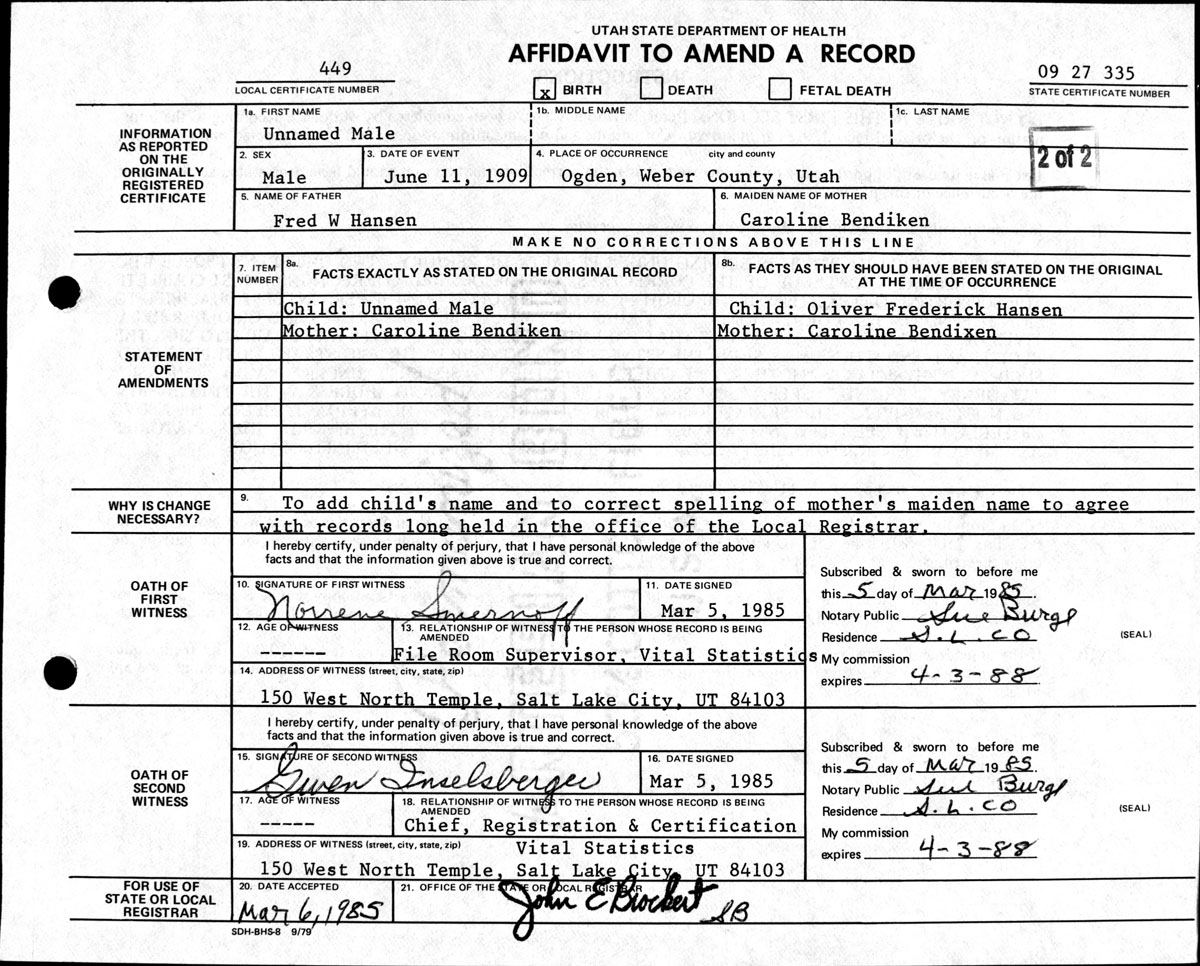 UTAH STATE DEPARTMENT OF HEALTH
AFFIDAVIT TO AMEND A RECORD
449
LOCAL CERTIFICATE NUMBER
x BIRTH DEATH FETAL DEATH
09 27 335
STATE CERTIFICATE NUMBER
INFORMATION AS REPORTED ON THE ORIGINALLY REGISTERED CERTIFICATE
1a. FIRST NAME 1b. MIDDLE NAME 1c. LAST NAME
Unnamed Male
2 of 2
2. SEX 3. DATE OF EVENT 4. PLACE OF OCCURRENCE city and county
Male June 11, 1909 Ogden, Weber County, Utah
5. NAME OF FATHER 6. MAIDEN NAME OF MOTHER
Fred W Hansen Caroline Bendiken
MAKE NO CORRECTIONS ABOVE THIS LINE
STATEMENT OF AMENDMENTS
7. ITEM NUMBER
8a. FACTS EXACTLY AS STATED ON THE ORIGINAL RECORD
8b. FACTS AS THEY SHOULD HAVE BEEN STATED ON THE ORIGINAL
AT THE TIME OF OCCURRENCE
Child: Unnamed Male Child: Oliver Frederick Hansen
Mother: Caroline Bendiken Mother: Caroline Bendixen
WHY IS CHANGE NECESSARY?
9. To add child's name and to correct spelling of mother's maiden name to agree
with records long held in the office of the Local Registrar.
OATH OF FIRST WITNESS
I hereby certify, under penalty of perjury, that I have personal knowledge of the above
facts and that the information given above is true and correct.
10. SIGNATURE OF FIRST WITNESS 11. DATE SIGNED
Norrene Smernoff Mar 5, 1985
12. AGE OF WITNESS 13. RELATIONSHIP OF WITNESS TO THE PERSON WHOSE RECORD IS BEING
AMENDED
----- File Room Supervisor, Vital Statistics
14. ADDRESS OF WITNESS (street, city, state, zip)
150 West North Temple, Salt Lake City, UT 84103
Subscribed & sworn to before me
this 5 day of Mar 1985.
Notary Public Sue Burgl
Residence S. L. CO (SEAL)
My commission
expires 4-3-88
OATH OF SECOND WITNESS
I hereby certify, under penalty of perjury, that I have personal knowledge of the above
facts and that the information given above is true and correct.
15. SIGNATURE OF SECOND WITNESS 16. DATE SIGNED
Gwen Inselsberger Mar 5, 1985
17. AGE OF WITNESS 18. RELATIONSHIP OF WITNESS TO THE PERSON WHOSE RECORD IS BEING
AMENDED
----- Chief, Registration & Certification
19. ADDRESS OF WITNESS (street, city, state, zip) Vital Statistics
150 West North Temple, Salt Lake City, UT 84103
Subscribed & sworn to before me
this 5 day of Mar 1985.
Notary Public Sue Burgl
Residence S. L. CO (SEAL)
My commission
expires 4-3-88
FOR USE OF STATE OR LOCAL REGISTRAR
20. DATE ACCEPTED 21. OFFICE OF THE STATE OR LOCAL REGISTRAR
Mar 6, 1985 John E Brockert SB
SDH-BHS-8 9/79